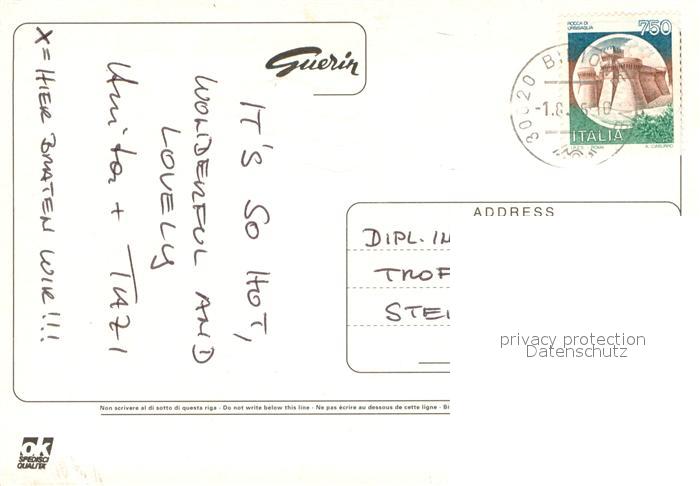 Guerin
IT'S SO HOT,
WONDERFUL AND
LOVELY
Anita +
X = HIER BRATEN WIR!!!
ROCCA DI
URBISAGLIA
750
ITALIA
30020
ADDRESS
DIPL. IN
TROF
STEI
privacy protection
Datenschutz
Non scrivere al di sotto di questa riga - Do not write below this line - Ne pas écrire au dessous de cette ligne - Bi
ok
SPEDISCI
QUALITÀ